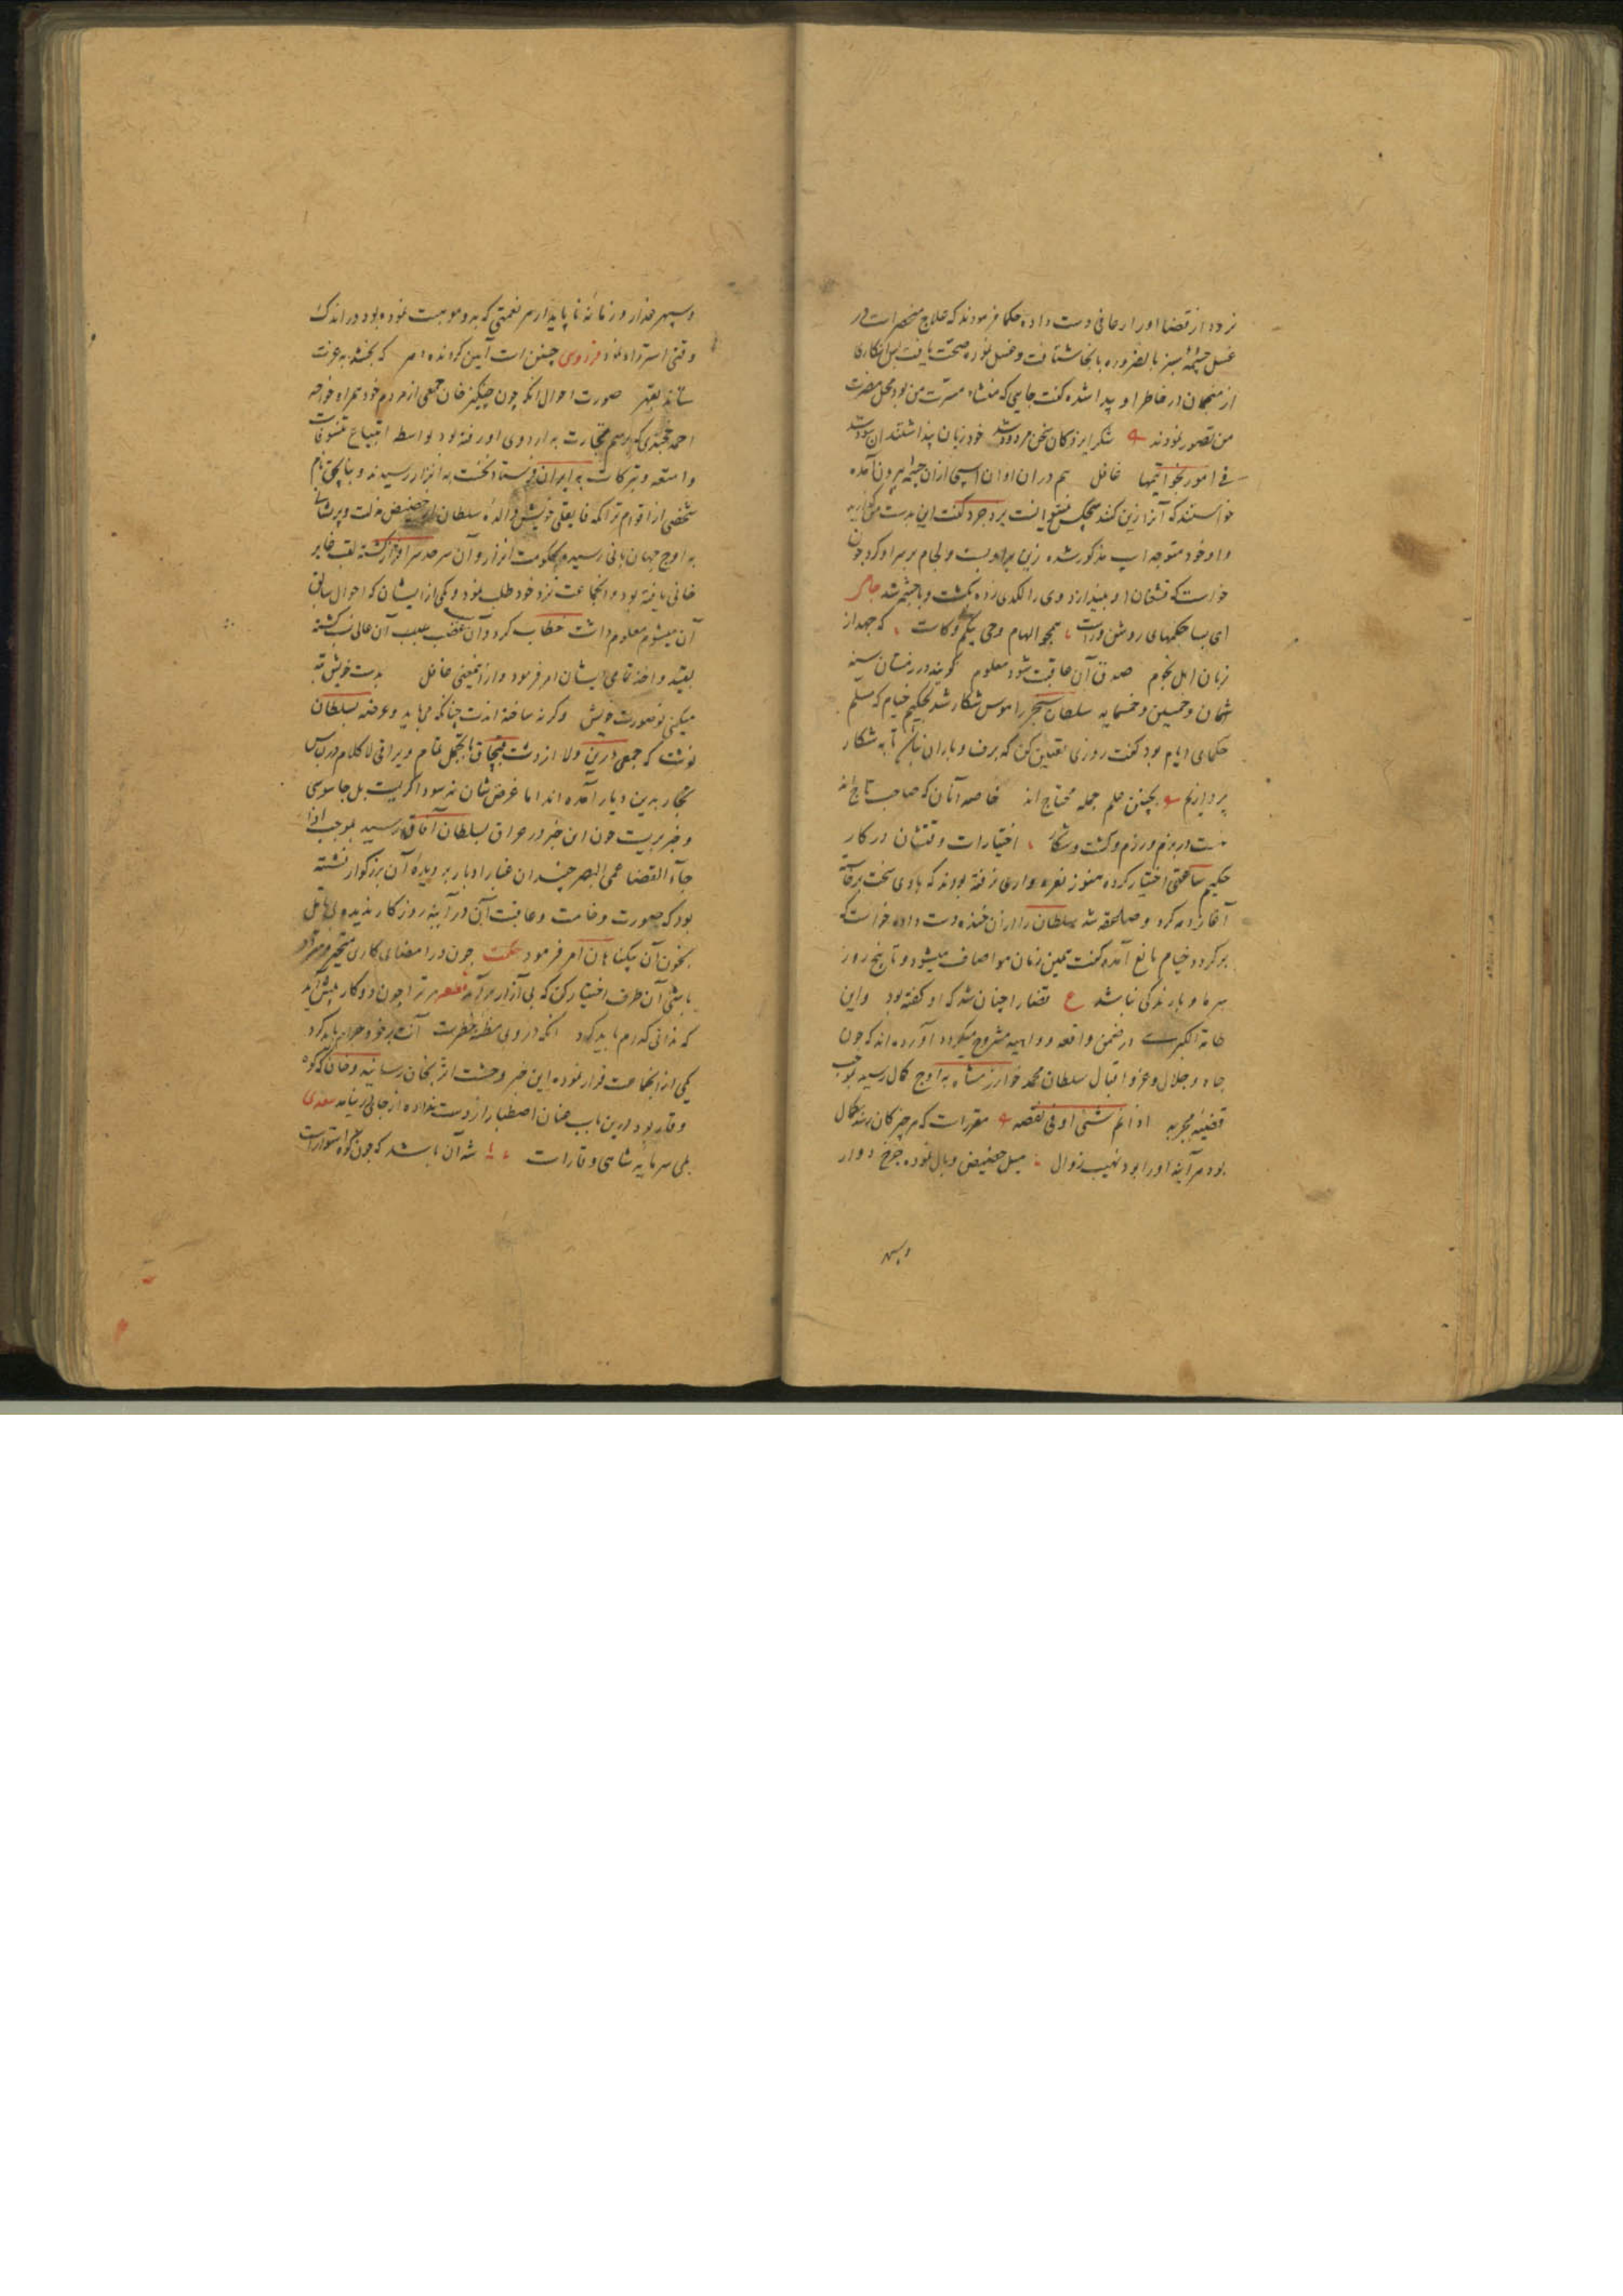 نرود از قضا او را رعافی دست داده حکما فرمودند که علاج منحصر است در
غسل چشمهٔ سبز بالضروره بانجا شتافت و غسل نموده صحت یافت پس انکاری
از منجمان در خاطر او پیدا شده گفت جایی که منشاء مسرت من بود محل مضرت
من تصور نمودند شکر ایزد کان سخن مردود شد خود زیان پنداشتند آن سود شد
فی امور بخواتیمها غافل هم در ان اوان اسپی از ان چشمه بیرون آمده
خواستند که آنرا زین کنند هیچکس نتوانست یزدجرد گفت این بدست من
و او خود متوجه اسپ مذکور شده زین بر او بست و لجام بر سر او کرد چون
خواست که قشقان او بیندازد وی را لکدی زده بکشت و با چشمه شد جامی
ای بسا حکمهای روشن و راست همچو الهام و وحی بی کم و کاست که جهد از
زبان اهل نجوم صدق آن عاقبت شود معلوم گویند در زمستان سنه
ثمان و خمسین و خمسمایه سلطان سنجر را هوس شکار شد بحکیم خیام که مسلم
حکمای ایام بود گفت روزی تعیین کن که برف و باران نباشد تا به شکار
پردازیم بچنین علم جمله محتاج اند خاصه آنان که صاحب تاج اند
هست در بزم و رزم و کشت و شکار اختیارات وقتشان در کار
حکیم ساعتی اختیار کرده هنوز نعره واری نرفته بودند که بادی سخت برخاسته
آغاز دمه کرد و صاعقه شد سلطان را از ان خنده دست داده خواست که
برگردد خیام مانع آمده گفت همین زمان هوا صاف میشود و تا پنج روز
سرما و بارندگی نباشد ع قضا را چنان شد که او گفته بود و این
طامة الکبری است در ضمن واقعه و داهیه مشروح میگردد آورده اند که چون
جاه و جلال و عز و اقبال سلطان محمد خوارزمشاه به اوج کمال رسید بموجب
قضیهٔ مجربه اذا تم شئی دنی نقصه مقررست که هر چیز کان رسد بکمال
بود هر آینه او را بود نهیب زوال میل حضیض وبال نموده چرخ دوار
وسپهر
وسپهر غدار و زمانهٔ ناپایدار هر نعمتی که بدو موهبت نموده بود در اندک
وقتی استرداد نمود فردوسی چنین است آیین گردنده دهر که بخشد به عزت
ستاند بقهر صورت احوال انکه چون چنگیز خان جمعی از مردم خود همراه خواجه
احمد خجندی که برسم تجارت به اردوی او رفته بود بواسطه ابتیاع تنسوقات
و امتعه و تبرکات به ایران فرستاد نخست به اترار رسیدند و ینالجق نام
شخصی از اقوام ترکمه قابقلی خویش والدهٔ سلطان از حضیض مذلت و پریشانی
به اوج جهان بانی رسیده بحکومت اترار و آن سرحد سرافراز گشته لقب غایر
خانی یافته بود و انجماعت نزد خود طلب نمود و یکی از ایشان که احوال سابق
آن میشوم معلوم داشت خطاب کرد و آن غضب سبب آن عالی نسب گشته
بقید و اخذ تمامی ایشان امر فرمود و از اینمعنی غافل بدست خویش تبه
میکنی تو صورت خویش وگرنه ساخته اندت چنانکه می باید و عرضه بسلطان
نوشت که جمعی درین ولا از دشت قبچاق با تجمل تمام و یراقی لاکلام در لباس
تجار بدین دیار آمده اند اما غرض شان نه سوداگریست بل جاسوسی
و خبر بریست چون این خبر در عراق بسلطان آفاق رسید بموجب اذا
جآء القضا عمی البصر چندان غبار ادبار بر دیدهٔ آن بزرگوار نشسته
بود که صورت وخامت و عاقبت آن در آینهٔ روزگار ندید و بی تامل
بخون آن بیگناهان امر فرمود حکمت چون در امضای کاری متحیر و متردد
باشی آن طرف اختیار کن که بی آزار بر آید شعر تو را چون دو کار پیش آید
که ندانی کدام باید کرد انکه در وی مظنه خطرست آنت بر خود حرام باید کرد
یکی از انجماعت فرار نموده این خبر وحشت اثر بخان رسانید و خان که کوه
وقار بود درین باب عنان اصطبار از دست نداده از جای نرفت سعدی
بلی سرمایهٔ شاهی وقارست شه آن باشد که چون کوه استوارست